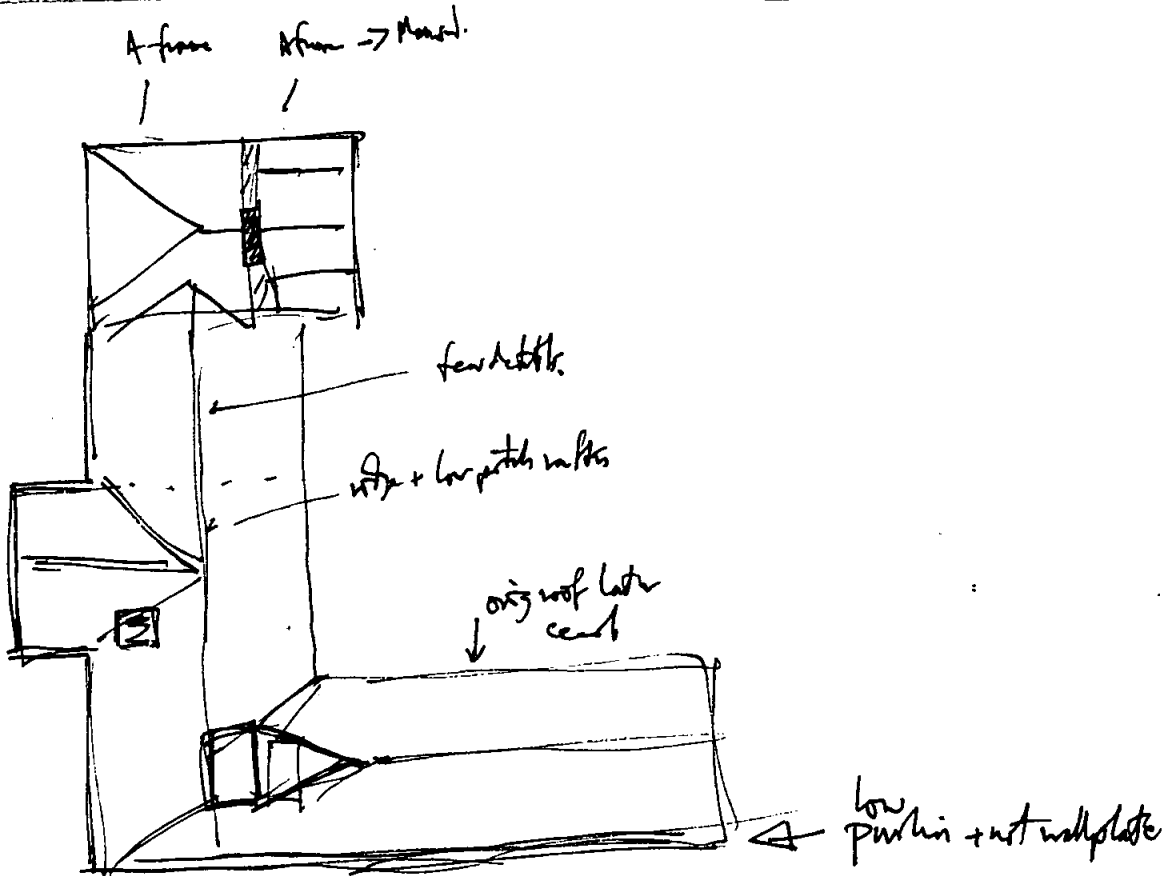 A-frame
A frame -> Mansard.
ridge + low pitch rafters
orig roof later
low
purlin + not wallplate